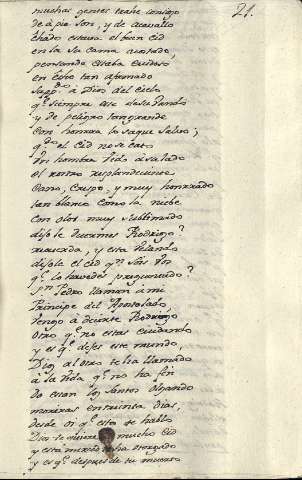 21.
muchas gentes trahe consigo
de à pie son, y de acavallo
echado estava el buen Cid
en la su cama acostado,
pensando estaba cuidoso
en fecho tan afamado
Supp.co à Dios del Cielo
q.e siempre sea de su vando
y de peligro tan grande
con honrra lo saque salvo;
q.do el Cid no se cató
un hombre vido à su lado
el rostro resplandeciente
Cano, Crespo, y muy honrrado
tan blanco como la niebe
con olor muy sublimado
dijole duermes Rodrigo?
recuerda, y esta velando
dijole el Cid q.n sois vos
q.e lo havedes preguntado?
Sn Pedro llaman à mi
Principe del Apostolado,
vengo à decirte Rodrigo
otro q.e no estas cuidando
y es q.e dejes este mundo,
Dios al otro te ha llamado
à la vida q.e no ha fin
do estan los Santos olgando
moriras en treinta dias,
desde oy q.e esto te hablo
Dios te quiere mucho Cid
y esta merced te ha otorgado
y es q.e despues de tu muerte